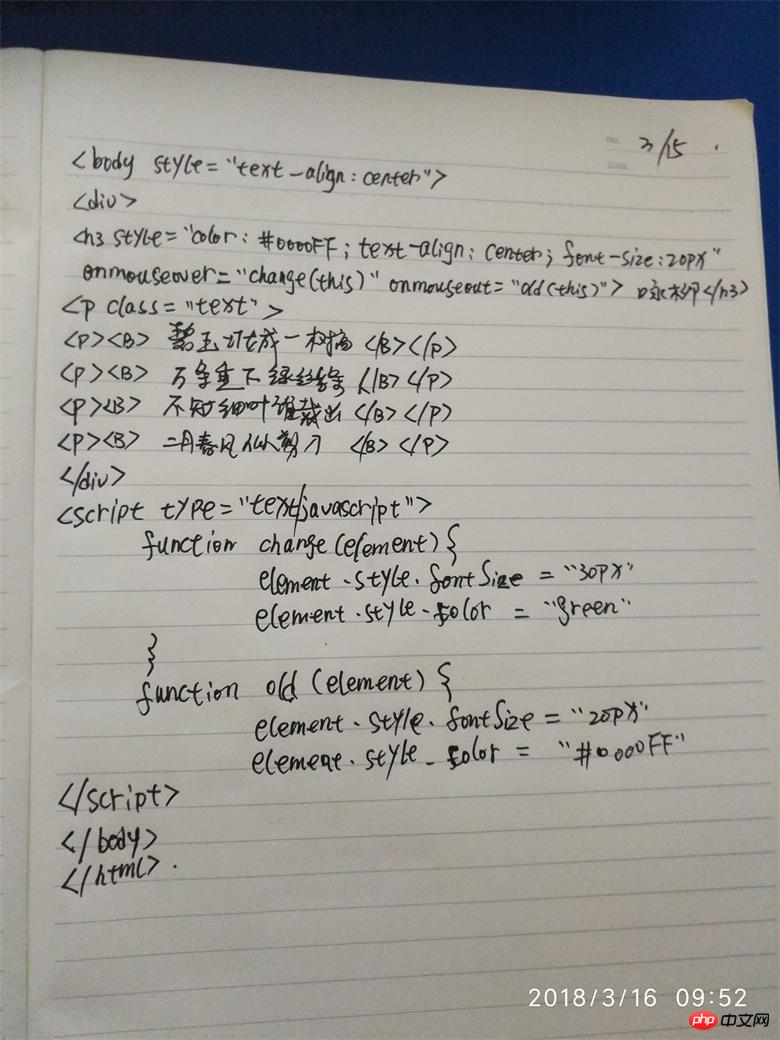 3/15.
<body style="text-align:center">
<div>
<h3 style="color:#0000FF;text-align:center;font-size:20px"
onmouseover="change(this)" onmouseout="old(this)">咏柳</h3>
<p class="text">
<P><B> 碧玉妆成一树高 </B></P>
<P><B> 万条垂下绿丝绦 </B></P>
<P><B> 不知细叶谁裁出 </B></P>
<P><B> 二月春风似剪刀 </B></P>
</div>
<script type="text/javascript">
function change(element){
element.style.fontSize = "30px"
element.style.color = "green"
}
function old(element){
element.style.fontSize = "20px"
element.style.color = "#0000FF"
</script>
</body>
</html>.
2018/3/16 09:52
php 中文网